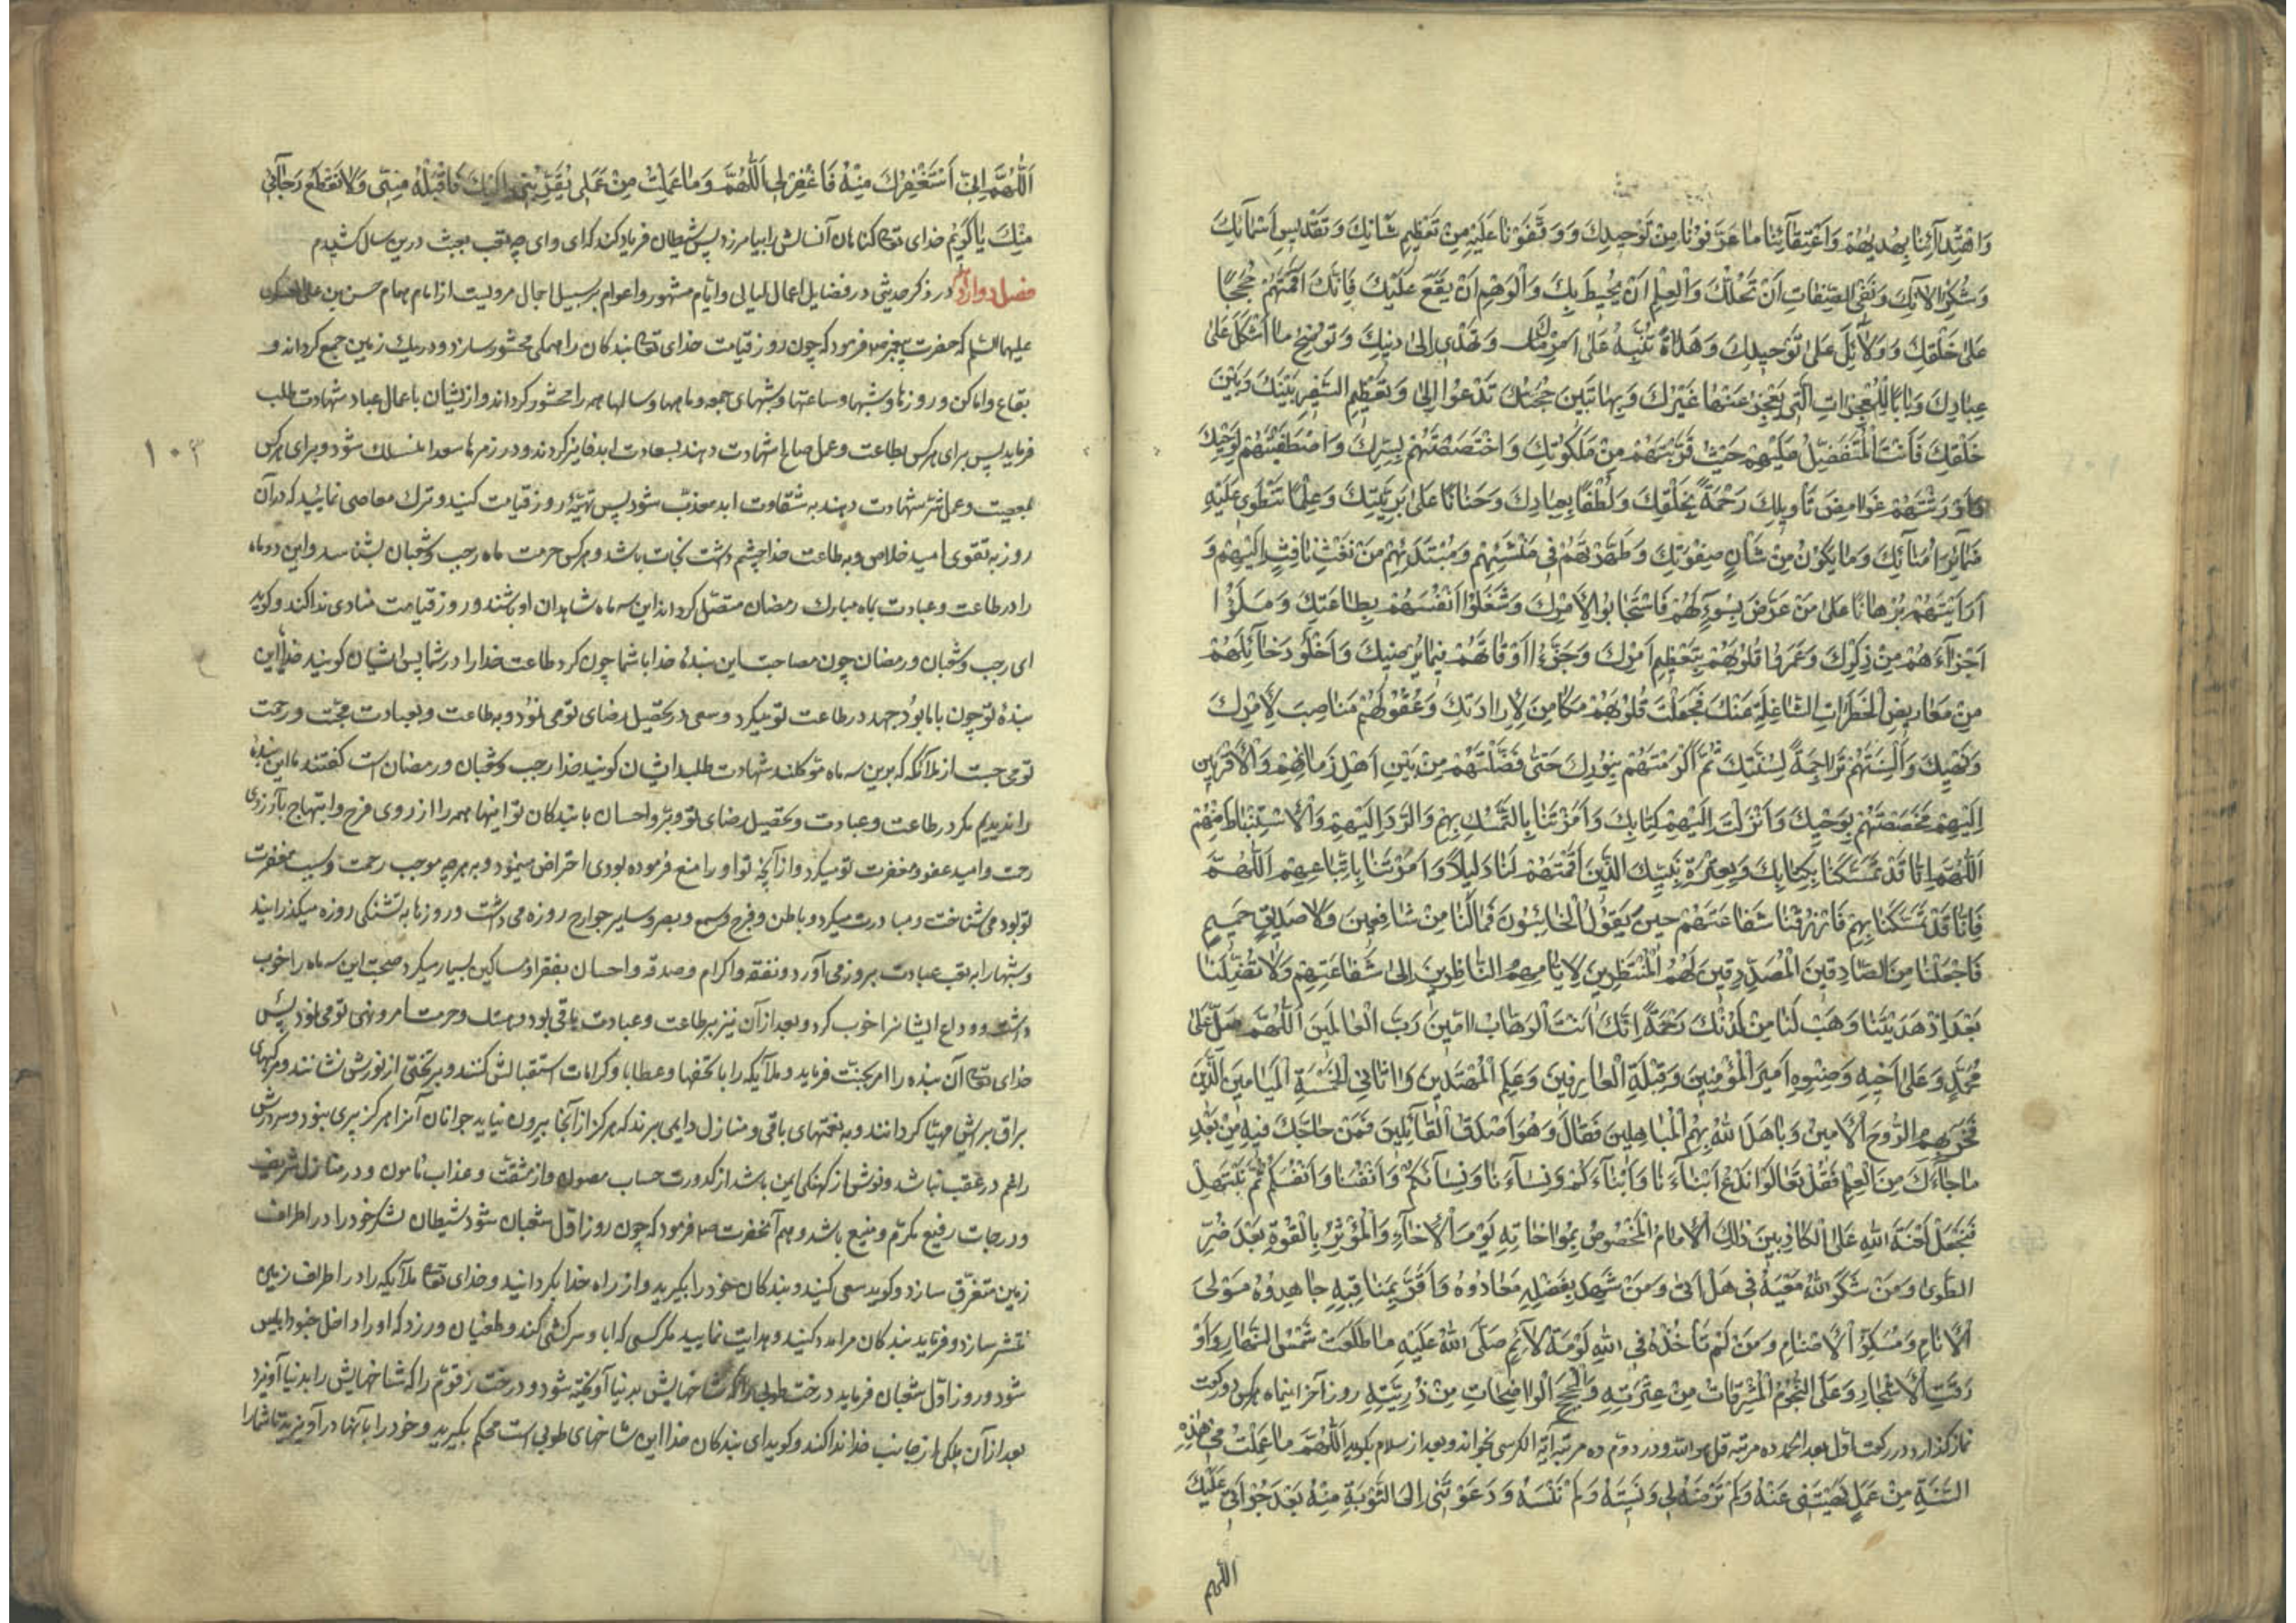 وَاهْتِدَائِنَا بِهُدٰيهُمْ وَاعْتِقَادِنَا مَا عَرَّفُونَا مِنْ تَوْحِيدِكَ وَوَقَّفُونَا عَلَيْهِ مِنْ تَعْظِيمِ شَانِكَ وَتَقْدِيسِ اَسْمَائِكَ
وَشُكْرِ اٰلَائِكَ وَنَفْيِ الصِّفَاتِ اَنْ تَحُلَّكَ وَالْعِلْمِ اَنْ يُحِيطَ بِكَ وَالْوَهْمِ اَنْ يَقَعَ عَلَيْكَ فَاِنَّكَ اَقَمْتَهُمْ حُجَجًا
عَلٰى خَلْقِكَ وَدَلَائِلَ عَلٰى تَوْحِيدِكَ وَهُدَاةً تُنَبِّهُ عَلٰى اَمْرِكَ وَتَهْدِي اِلٰى دِينِكَ وَتُوضِحُ مَا اَشْكَلَ عَلٰى
عِبَادِكَ وَبَابًا لِلْمُعْجِزَاتِ الَّتِي يَعْجِزُ عَنْهَا غَيْرُكَ وَبِهَا تَبِينُ حُجَّتُكَ وَتَدْعُوا اِلٰى تَعْظِيمِ السَّفِيرِ بَيْنَكَ وَبَيْنَ
خَلْقِكَ فَاَنْتَ الْمُتَفَضِّلُ عَلَيْهِمْ حَيْثُ قَرَّبْتَهُمْ مِنْ مَلَكُوتِكَ وَاخْتَصَصْتَهُمْ بِسِرِّكَ وَاصْطَفَيْتَهُمْ لِوَحْيِكَ
وَاَوْرَثْتَهُمْ غَوَامِضَ تَاْوِيلِكَ رَحْمَةً بِخَلْقِكَ وَلُطْفًا بِعِبَادِكَ وَحَنَانًا عَلٰى بَرِيَّتِكَ وَعِلْمًا بِمَا تَنْطَوِي عَلَيْهِ
ضَمَائِرُ اُمَنَائِكَ وَمَا يَكُونُ مِنْ شَاْنِ صَفْوَتِكَ وَطَهَّرْتَهُمْ فِي مَنْشَئِهِمْ وَمُبْتَدَئِهِمْ وَحَرَسْتَهُمْ مِنْ نَفْثِ نَافِثٍ اِلَيْهِمْ وَ
اَرَيْتَهُمْ بُرْهَانًا عَلٰى مَنْ عَرَضَ بِسُوءٍ لَهُمْ فَاسْتَجَابُوا لِاَمْرِكَ وَشَغَلُوا اَنْفُسَهُمْ بِطَاعَتِكَ وَمَلَؤُا
اَجْزَاءَهُمْ مِنْ ذِكْرِكَ وَعَمَرُوا قُلُوبَهُمْ بِتَعْظِيمِ اَمْرِكَ وَجَزَّءُوا اَوْقَاتَهُمْ فِيمَا يُرْضِيكَ وَاَخْلَوْ دَخَائِلَهُمْ
مِنْ مَعَارِيضِ الْخَطَرَاتِ الشَّاغِلَةِ عَنْكَ فَجَعَلْتَ قُلُوبَهُمْ مَكَامِنَ لِاِرَادَتِكَ وَعُقُولَهُمْ مَنَاصِبَ لِاَمْرِكَ
وَنَهْيِكَ وَاَلْسِنَتَهُمْ تَرَاجِمَةً لِسُنَّتِكَ ثُمَّ اَكْرَمْتَهُمْ بِنُورِكَ حَتّٰى فَضَّلْتَهُمْ مِنْ بَيْنِ اَهْلِ زَمَانِهِمْ وَالْاَقْرَبِينَ
اِلَيْهِمْ فَخَصَصْتَهُمْ بِوَحْيِكَ وَاَنْزَلْتَ اِلَيْهِمْ كِتَابَكَ وَاَمَرْتَنَا بِالتَّمَسُّكِ بِهِمْ وَالرَّدِّ اِلَيْهِمْ وَالْاِسْتِنْبَاطِ مِنْهُمْ
اَللّٰهُمَّ اِنَّا قَدْ تَمَسَّكْنَا بِكِتَابِكَ وَبِعِتْرَةِ نَبِيِّكَ الَّذِينَ اَقَمْتَهُمْ لَنَا دَلِيلًا وَاَمَرْتَنَا بِاتِّبَاعِهِمْ اَللّٰهُمَّ
فَاِنَّا قَدْ تَمَسَّكْنَا بِهِمْ فَارْزُقْنَا شَفَاعَتَهُمْ حِينَ يَقُولُ الْخَائِبُونَ فَمَا لَنَا مِنْ شَافِعِينَ وَلَا صَدِيقٍ حَمِيمٍ
فَاجْعَلْنَا مِنَ الصَّادِقِينَ الْمُصَدِّقِينَ لَهُمُ الْمُنْتَظِرِينَ لِاَيَّامِهِمُ النَّاظِرِينَ اِلٰى شَفَاعَتِهِمْ وَلَا تُضِلَّنَا
بَعْدَ اِذْ هَدَيْتَنَا وَهَبْ لَنَا مِنْ لَدُنْكَ رَحْمَةً اِنَّكَ اَنْتَ الْوَهَّابُ اٰمِينَ رَبَّ الْعَالَمِينَ اَللّٰهُمَّ صَلِّ عَلٰى
مُحَمَّدٍ وَعَلٰى اَخِيهِ وَصِنْوِهِ اَمِيرِ الْمُؤْمِنِينَ وَقِبْلَةِ الْعَارِفِينَ وَعَلَمِ الْمُهْتَدِينَ وَثَانِي الْخَمْسَةِ الْمَيَامِينِ الَّذِينَ
فَخَرَ بِهِمُ الرُّوحُ الْاَمِينُ وَبَاهَلَ اللّٰهُ بِهِمُ الْمُبَاهِلِينَ فَقَالَ وَهُوَ اَصْدَقُ الْقَائِلِينَ فَمَنْ حَاجَّكَ فِيهِ مِنْ بَعْدِ
مَا جَاءَكَ مِنَ الْعِلْمِ فَقُلْ تَعَالَوْا نَدْعُ اَبْنَاءَنَا وَاَبْنَاءَكُمْ وَنِسَاءَنَا وَنِسَاءَكُمْ وَاَنْفُسَنَا وَاَنْفُسَكُمْ ثُمَّ نَبْتَهِلْ
فَنَجْعَلْ لَعْنَةَ اللّٰهِ عَلَى الْكَاذِبِينَ ذٰلِكَ الْاِمَامُ الْمَخْصُوصُ بِمُوَاخَاتِهِ يَوْمَ الْاِخَاءِ وَالْمُؤْثِرُ بِالْقُوتِ بَعْدَ ضُرِّ
الطَّوٰى وَمَنْ شَكَرَ اللّٰهُ سَعْيَهُ فِي هَلْ اَتٰى وَمَنْ شَهِدَ بِفَضْلِهِ مُعَادُوهُ وَاَقَرَّ بِمَنَاقِبِهِ جَاحِدُوهُ مَوْلَى
الْاَنَامِ وَمُكَسِّرِ الْاَصْنَامِ وَمَنْ لَمْ تَاْخُذْهُ فِي اللّٰهِ لَوْمَةُ لَائِمٍ صَلَّى اللّٰهُ عَلَيْهِ مَا طَلَعَتْ شَمْسُ النَّهَارِ وَاَوْ
رَقَتِ الْاَشْجَارُ وَعَلَى النُّجُومِ الْمُشْرِقَاتِ مِنْ عِتْرَتِهِ وَالْحُجَجِ الْوَاضِحَاتِ مِنْ ذُرِّيَّتِهِ روز آخر اینماه هرکس دو رکعت
نماز کذارد در رکعت اول بعد الحمد ده مرتبه قل هو الله و در دوم ده مرتبه آیة الکرسی بخواند و بعد از سلام بکوید اَللّٰهُمَّ مَا عَمِلْتُ فِي هٰذِهِ
السَّنَةِ مِنْ عَمَلٍ نَهَيْتَنِي عَنْهُ وَلَمْ تَرْضَهُ لِي وَنَسِيتُهُ وَلَمْ تَنْسَهُ وَدَعَوْتَنِي اِلَى التَّوْبَةِ مِنْهُ بَعْدَ جُرْاَتِي عَلَيْكَ
اللّهم
اَللّٰهُمَّ اِنِّي اَسْتَغْفِرُكَ مِنْهُ فَاغْفِرْ لِي اَللّٰهُمَّ وَمَا عَمِلْتُ مِنْ عَمَلٍ يُقَرِّبُنِي اِلَيْكَ فَاقْبَلْهُ مِنِّي وَلَا تَقْطَعْ رَجَائِي
مِنْكَ يَا كَرِيمُ خدای تع کناهان آنسالش را بیامرزد پس شیطان فریاد کند که ای وای چه تعب بعبث درین سال کشیدم
فصل دوازدهم در ذکر حدیثی در فضایل اعمال لیالی و ایام مشهور و اعوام بر سبیل اجمال مرویست از امام همام حسن بن علی العسکری
علیهما السلم که حضرت پیغمبر ص فرمود که چون روز قیامت خدای تع بندکان را همکی محشور سازد و در یک زمین جمع کرداند و
بقاع و اماکن و روزها و شبها و ساعتها و شبهای جمعه و ماهها و سالها همه را محشور کرداند و از ایشان باعمال عباد شهادت طلب
فرماید پس برای هرکس بطاعت و عمل صالح شهادت دهند بسعادت ابد فایز کردند و در زمره سعدا منسلک شود و برای هرکس
۱۰۳
بمعصیت و عمل شر شهادت دهند به شقاوت ابد معذب شود پس تهیّهٔ روز قیامت کنید و ترک معاصی نمایید که در آن
روز به تقوی امید خلاص و به طاعت خدا چشم داشت نجات باشد و هرکس حرمت ماه رجب و شعبان بشناسد و این دو ماه
را در طاعت و عبادت بماه مبارک رمضان متصل کرداند این سه ماه شاهدان او باشند و روز قیامت منادی ندا کند و کوید
ای رجب و شعبان و رمضان چون مصاحبت این بندهٔ خدا با شما چون کرد طاعت خدا را در شما پس ایشان کویند خدایا این
بندهٔ تو چون با ما بود جهد در طاعت تو میکرد و سعی در تحصیل رضای تو می نمود و به طاعت و بعبادت محبّت و رحمت
تو می جست از ملائکه که برین سه ماه موکلند شهادت طلبد ایشان کویند خدا رجب و شعبان و رمضان راست کفتند ما این بندهٔ
را ندیدیم مکر در طاعت و عبادت و تحصیل رضای تو و بر و احسان با بندکان تو اینها همه را از روی فرح و ابتهاج بآرزوی
رحمت و امید عفو و مغفرت تو میکرد و از آنچه تو او را منع فرموده بودی احتراض مینمود و به هرچه موجب رحمت و سبب مغفرت
تو بود می شناخت و مبادرت میکرد و باطن و فرج و سمع و بصر و سایر جوارح روزه می داشت و روزها به تشنکی روزه میکذرانید
و شبها را به تعب عبادت بروز می آورد و نفقه و اکرام و صدقه و احسان بفقرا و مساکین بسیار میکرد صحبت این سه ماه را خوب
داشت و وداع ایشانرا خوب کرد و بعد از آن نیز بر طاعت و عبادت باقی بود و هتک و حرمت امر و نهی تو می نمود پس
خدای تع آن بنده را امر بجنّت فرماید و ملائکه را با تحفها و عطایا و کرامات استقبالش کنند و بر تختی از نورش نشانند و مرکبهای
براق برایش مهیّا کردانند و به نعمتهای باقی و منازل دایمی برند که هرکز از آنجا بیرون نیاید جوانان آنرا هرکز پیری نبود و سرورش
را غم در عقب نباشد و نوش از کهنکی ایمن باشد از کدورت حساب مصون و از مشقّت و عذاب مامون و در منازل شریف
و درجات رفیع مکرّم و منیع باشد و هم آنحضرت ص فرمود که چون روز اوّل شعبان شود شیطان لشکر خود را در اطراف
زمین متفرّق سازد و کوید سعی کنید و بندکان خود را بکیرید و از راه خدا بکردانید و خدای تع ملائکه را در اطراف زمین
منتشر سازد و فرماید بندکان مرا مدد کنید و هدایت نمایید مکر کسی که ابا و سرکشی کند و طغیان ورزد که او را داخل جنود ابلیس
شود و روز اوّل شعبان فرماید درخت طوبی را که شاخهایش بدنیا آویخته شود و درخت زقوّم را که شاخهایش را بدنیا آویزد
بعد از آن ملکی از جانب خدا ندا کند و کوید ای بندکان خدا این شاخهای طوبی است محکم بکیرید و خود را بآنها در آویزید تا شما را